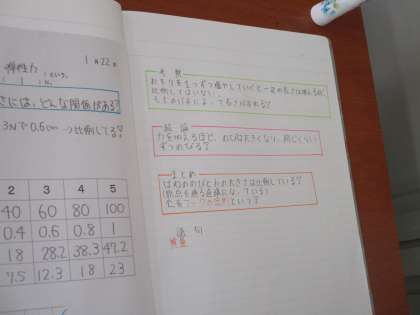 弾性力
1月22日
さには、どんな関係がある?
3Nで0.6cm→比例してる?
2 3 4 5
40 60 80 100
0.4 0.6 0.8 1
18 28.2 38.3 47.2
7.5 12.3 18 23
考察
おもりを1つずつ増やしていくと一定の長さは増えるが、
比例してはいない。
結論
力を加えるほど、ねじれは大きくなり、同じくらい
ずつのびる?
まとめ
ばねののびと力の大きさは比例している?
(原点を通る直線になっている)
これをフックの法則という?
語句